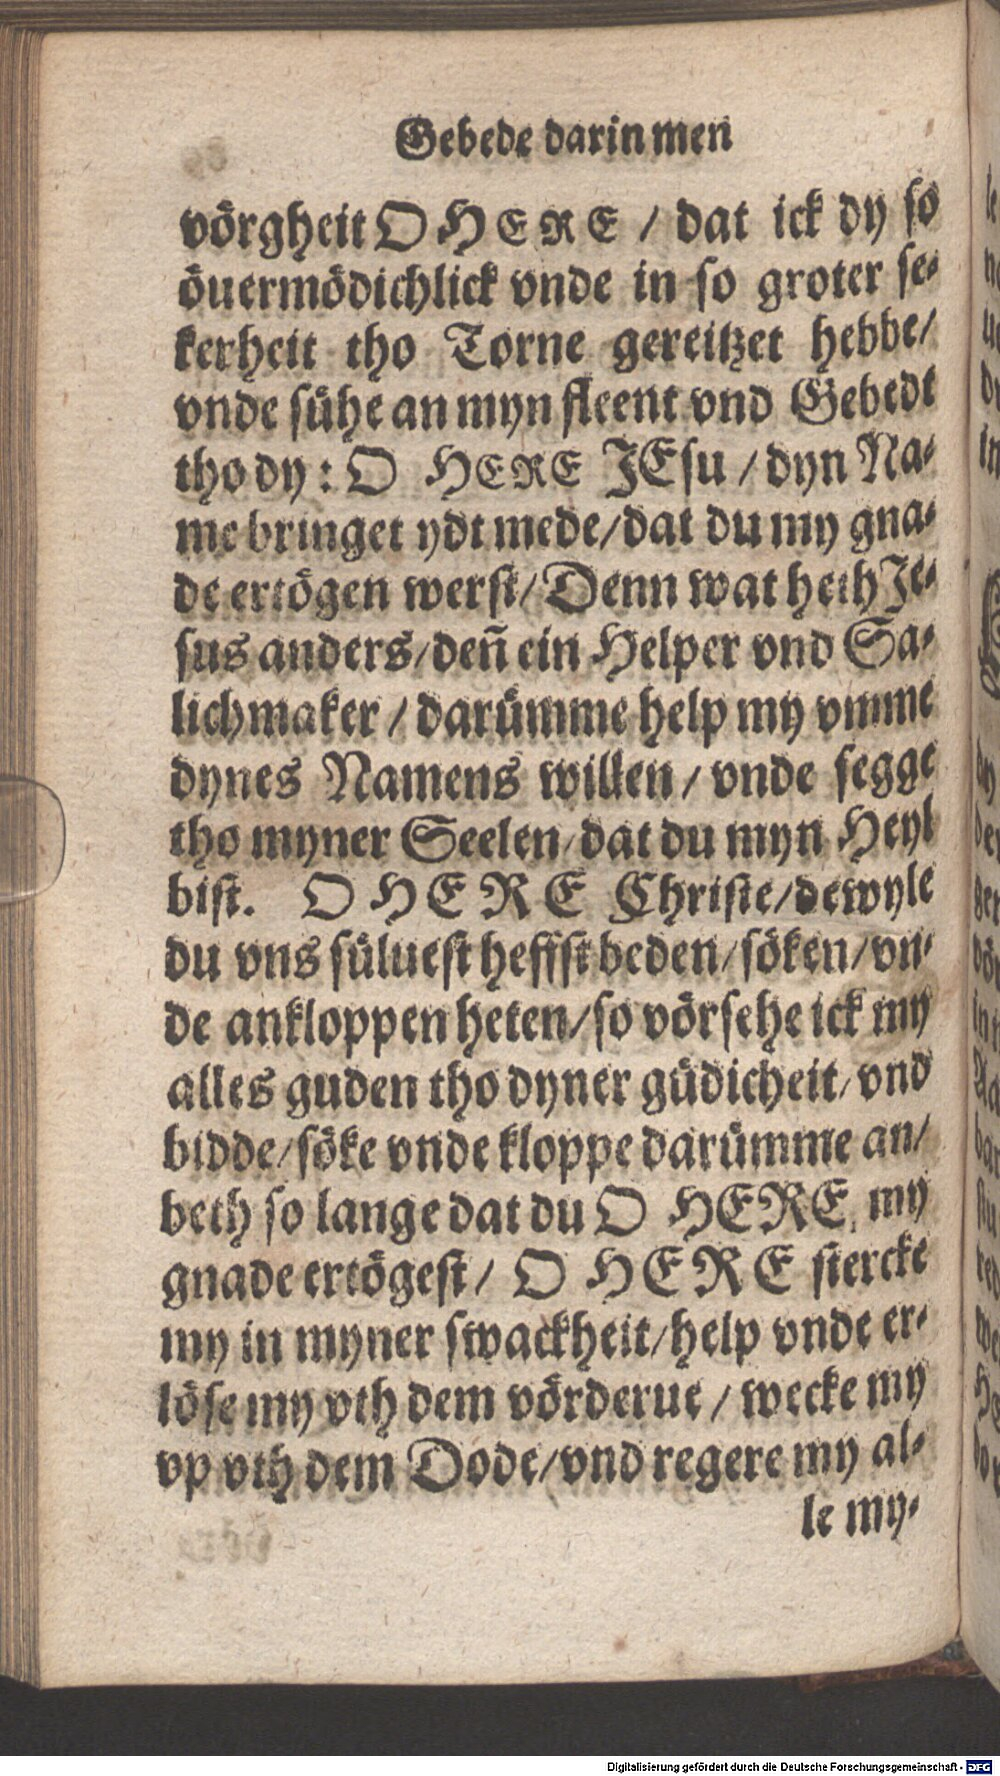 Gebede darin men
vörgheit O HERE / dat ick dy so
öuermödichlick vnde in so groter se-
kerheit tho Torne gereitzet hebbe/
vnde sühe an myn fleent vnd Gebedt
tho dy : O HERE JEsu / dyn Na-
me bringet ydt mede/dat du my gna-
de ertögen werst/ Denn wat heth Je-
sus anders/den̄ ein Helper vnd Sa-
lichmaker / darümme help my vmme
dynes Namens willen / vnde segge
tho myner Seelen/dat du myn Heyl
bist. O HERE Christe/dewyle
du vns süluest heffst beden/söken/vn-
de ankloppen heten/so vörsehe ick my
alles guden tho dyner güdicheit/vnd
bidde/söke vnde kloppe darümme an/
beth so lange dat du O HERE, my
gnade ertögest/ O HERE stercke
my in myner swackheit/help vnde er-
löse my vth dem vörderue / wecke my
vp vth dem Dode/vnd regere my al-
le my-
Digitalisierung gefördert durch die Deutsche Forschungsgemeinschaft - DFG